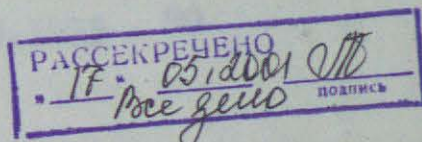 РАССЕКРЕЧЕНО
" 17 " 05.2001
Все дело подпись